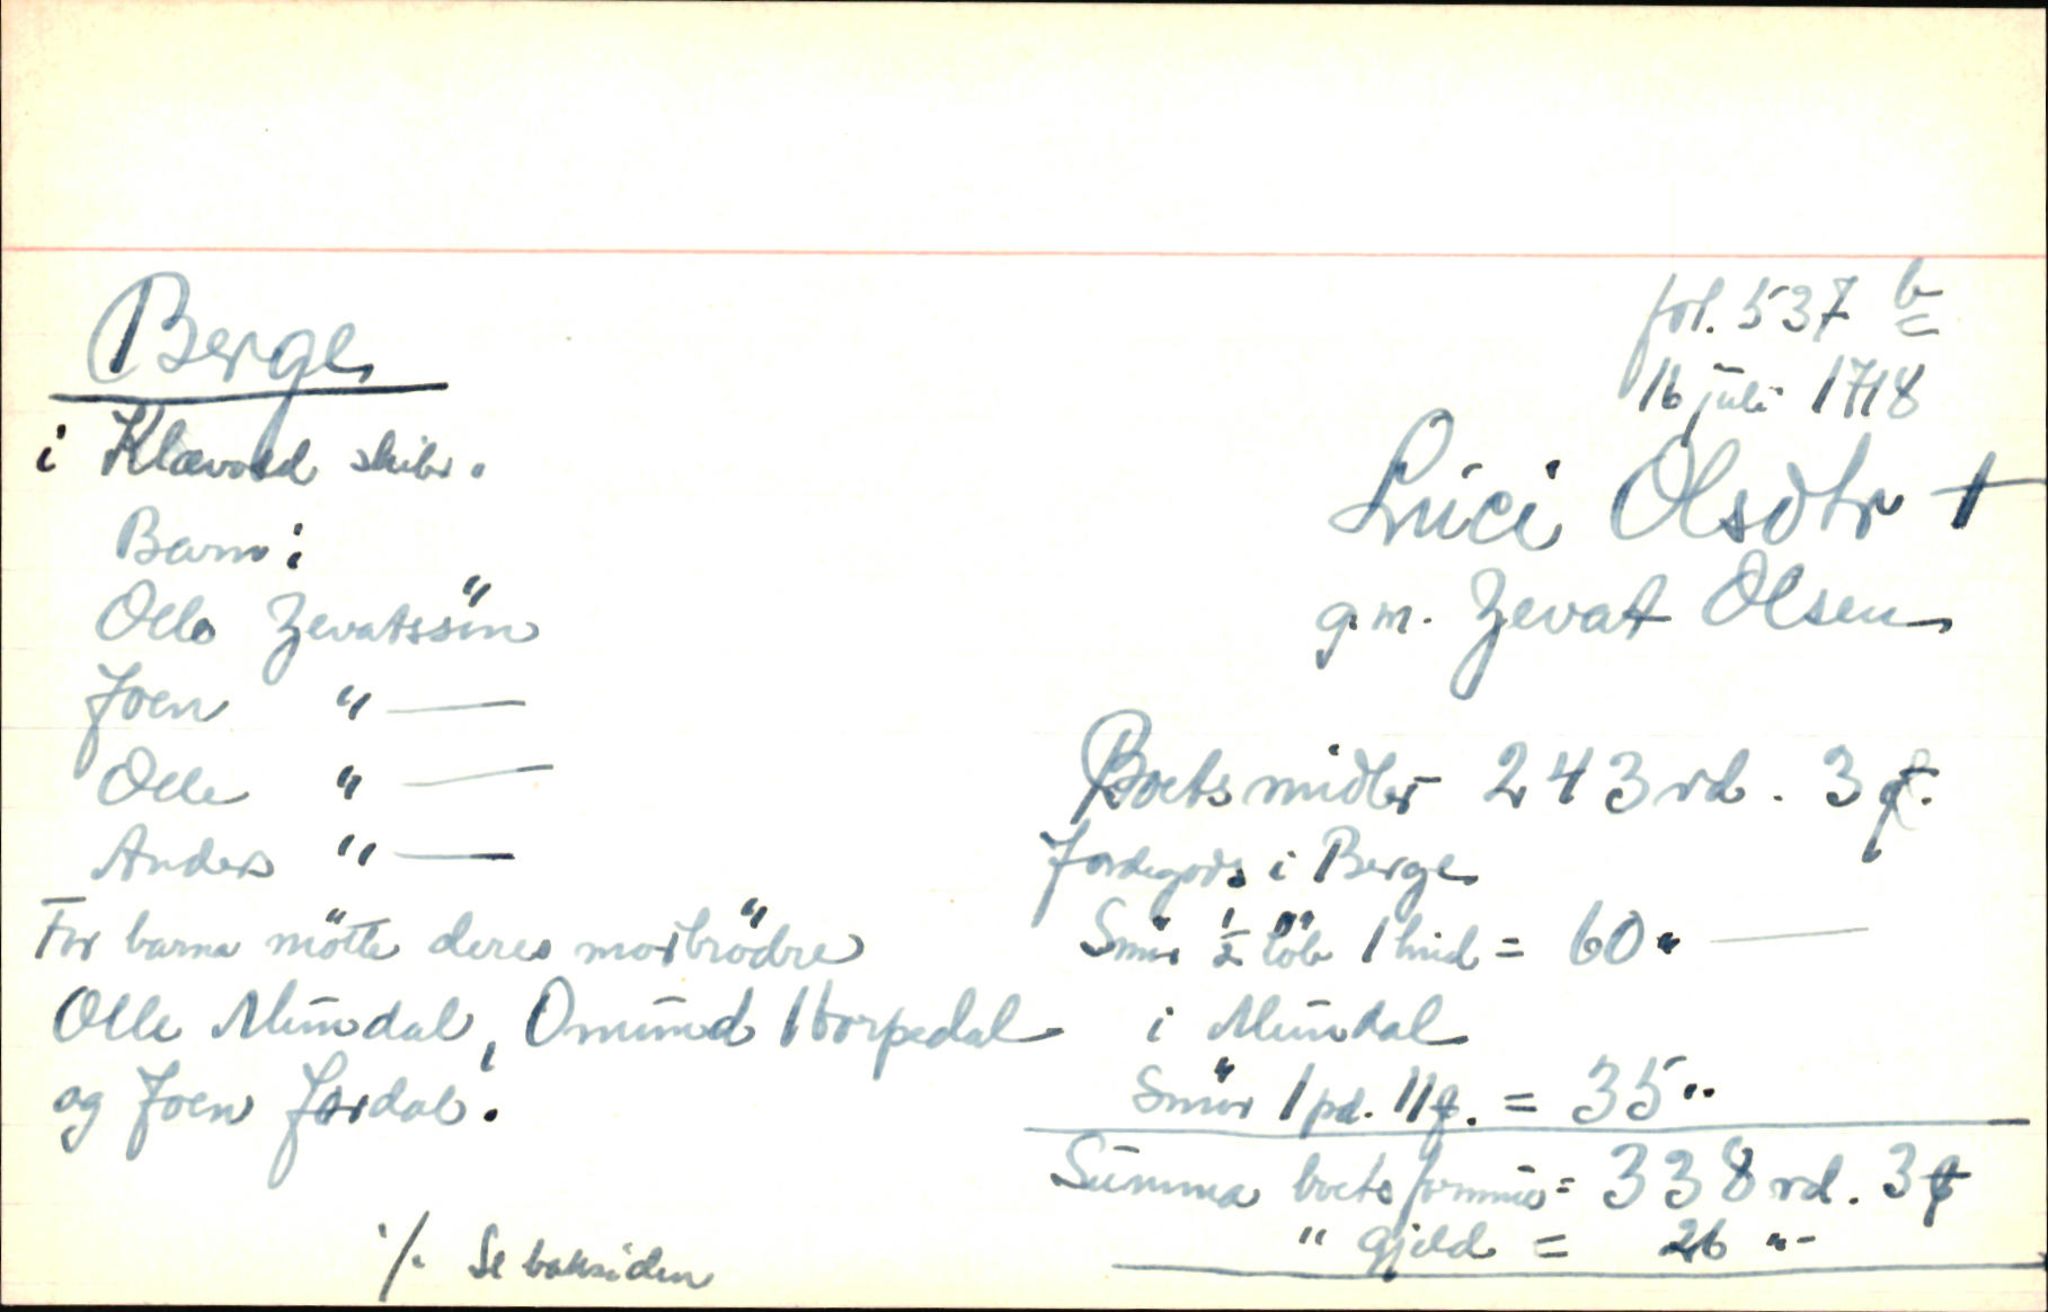 Berge
i Klævold skibr.
Barn:
Olle Zevatssön
Joen " —
Olle " —
Anders " —
For barna mötte deres morbrödre
Olle Mundal, Omund Torpedal
og Joen Jordal.
./. Se baksiden
fol. 537 b
16 juli 1718
Luci Olsdtr †
g.m. Zevat Olsen
Boets midler 243 rd. 3
Jordegods i Berge
Smör 1/2 löb 1 hud = 60 " —
i Mundal
Smör 1 pd. 11 = 35 "
Summa boets formue = 338 rd. 3
" gjeld = 26 " -